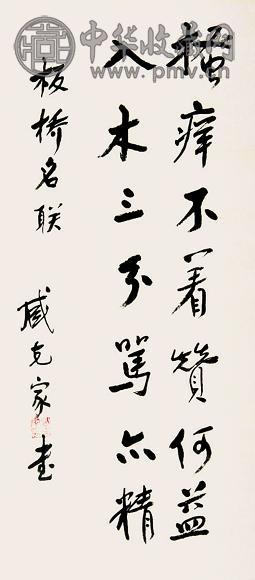 中华收藏网
www.pmv.cn
搔痒不着赞何益
入木三分骂亦精
板桥名联
臧克家书